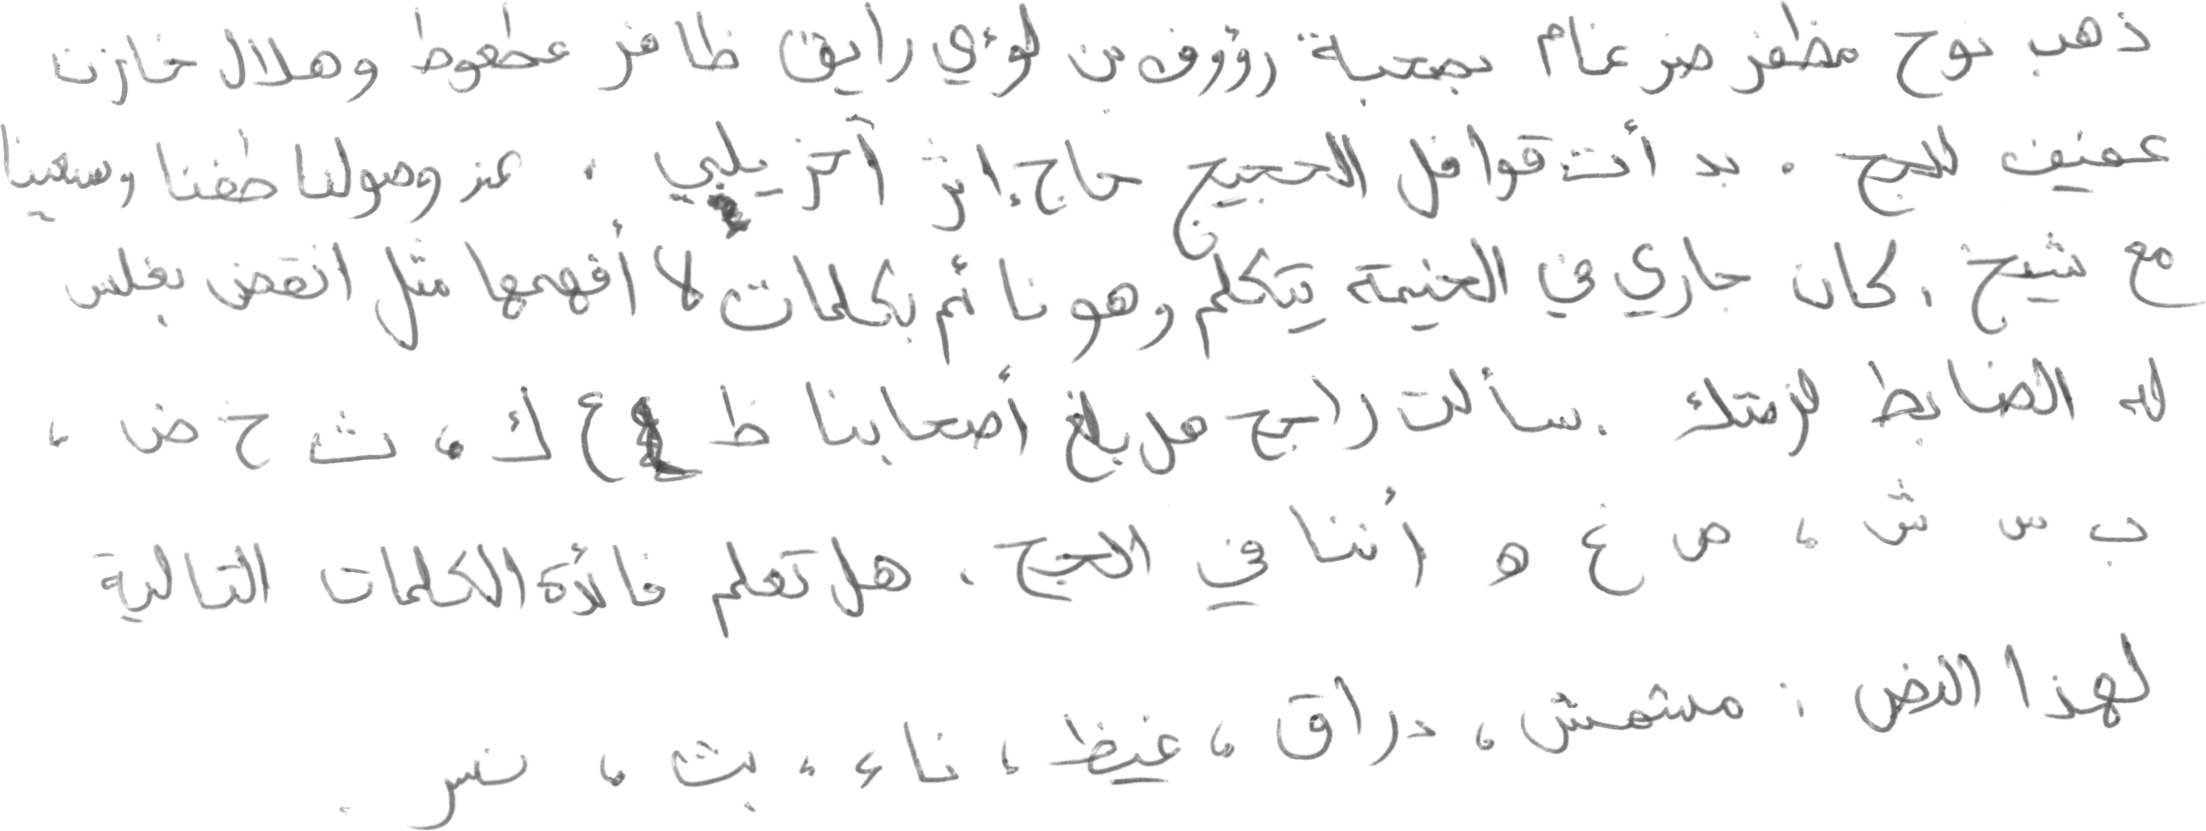 ذهب نوح مظفر ضرغام بصحبة رؤوف بن لؤي رايق ظافر عطعوط وهلال خازن
عفيف للحج . بدأت قوافل الحجيج حاج إثر آخر يلبي . عند وصولنا طفنا وسعينا
مع شيخ . كان جاري في الخيمة يتكلم وهو نائم بكلمات لا أفهمها مثل انقض بغلس
له الضابط لزمتك . سألت راجح هل بلغ أصحابنا ظ ع ك ، ث خ ض ،
ب س ش ، ص غ ه أننا في الحج . هل تعلم فائدة الكلمات التالية
لهذا النص : مشمش ، دراق ، غيظ ، ناء ، بث ، نسر .